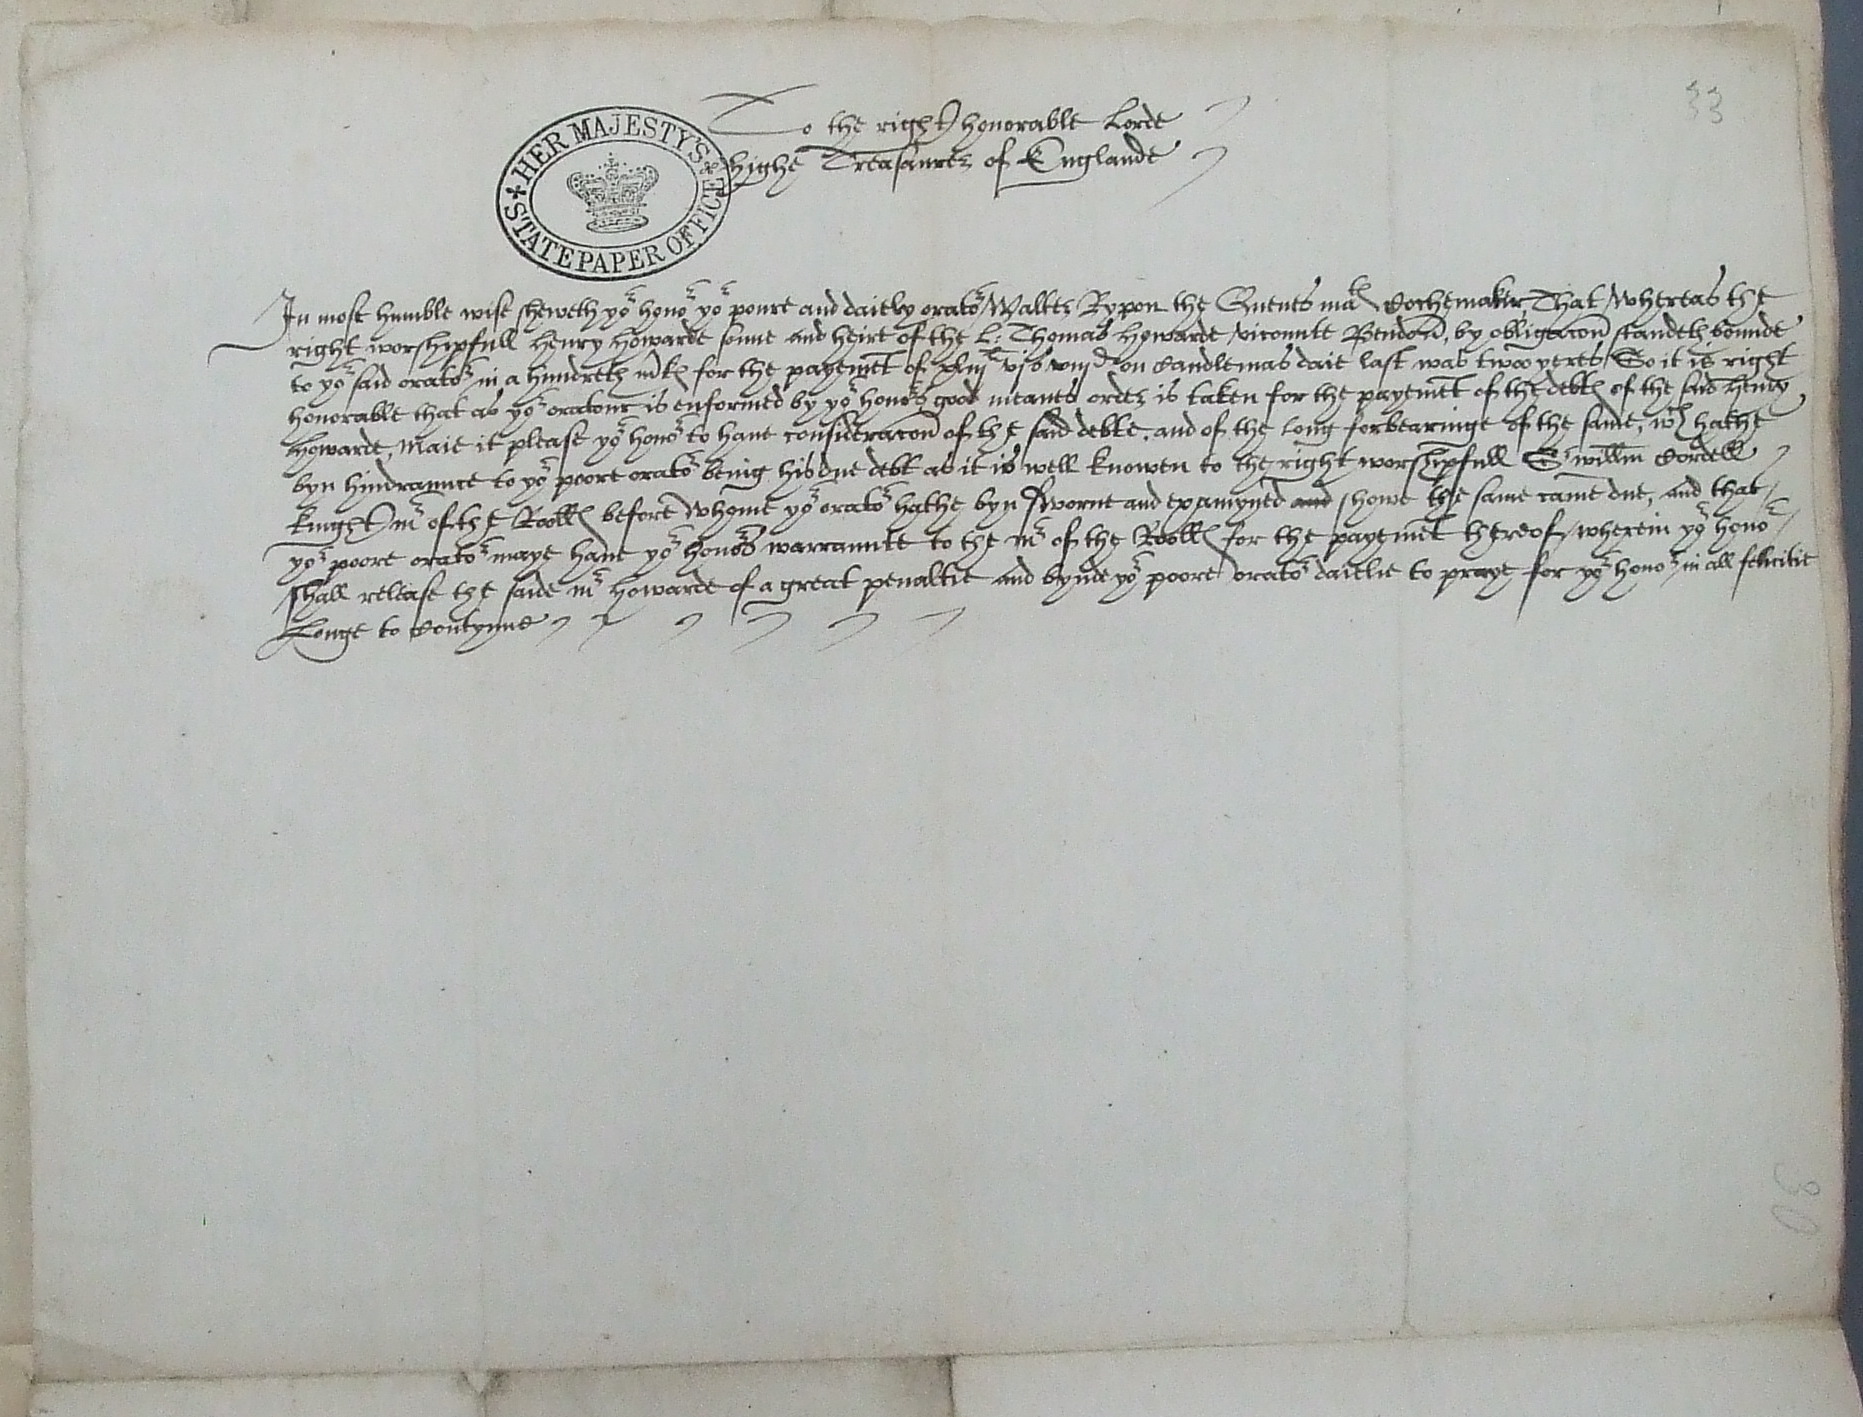 33
To the right honorable Lorde
highe Treasaurer of Englande
HER MAJESTY'S STATE PAPER OFFICE
In most humble wise sheweth yor honor yor poure and dailey orator Walter Rypon the Quenes matꝭ Cochemaker, That Whereas the
right worshipfull Henry Howarde sonne and heire of the L: Thomas Howarde vicounte Bendon, by obligacon standeth bounde
to yor said orator in a hundreth mꝛkꝭ for the payemt of xliijli vjs viijd on Candlemas daie last was twoo yeres So it is right
honorable that as yor oratour is enformed by yor honors good meanes order is taken for the payemt of the debtꝭ of the said Henry
Howarde, Maie it please yor honor to haue consideracon of the said debte, and of the long forbearinge of the same, wch hathe
byn hindraunce to yor poore orator being his due debt as it is well knowen to the right worshipfull Sr willm Cordell
knight mr of the Roollꝭ before whome yor orator hathe byn sworne and examyned and howe the same came due, and that
yor poore orator maye haue yor honors warraunte to the mr of the Roollꝭ for the payemt thereof, wherein yor honor
shall release the saide mr Howarde of a great penaltie and bynde yor poore orator dailie to praye for yor honor in all felicitie
Longe to Contynue
30